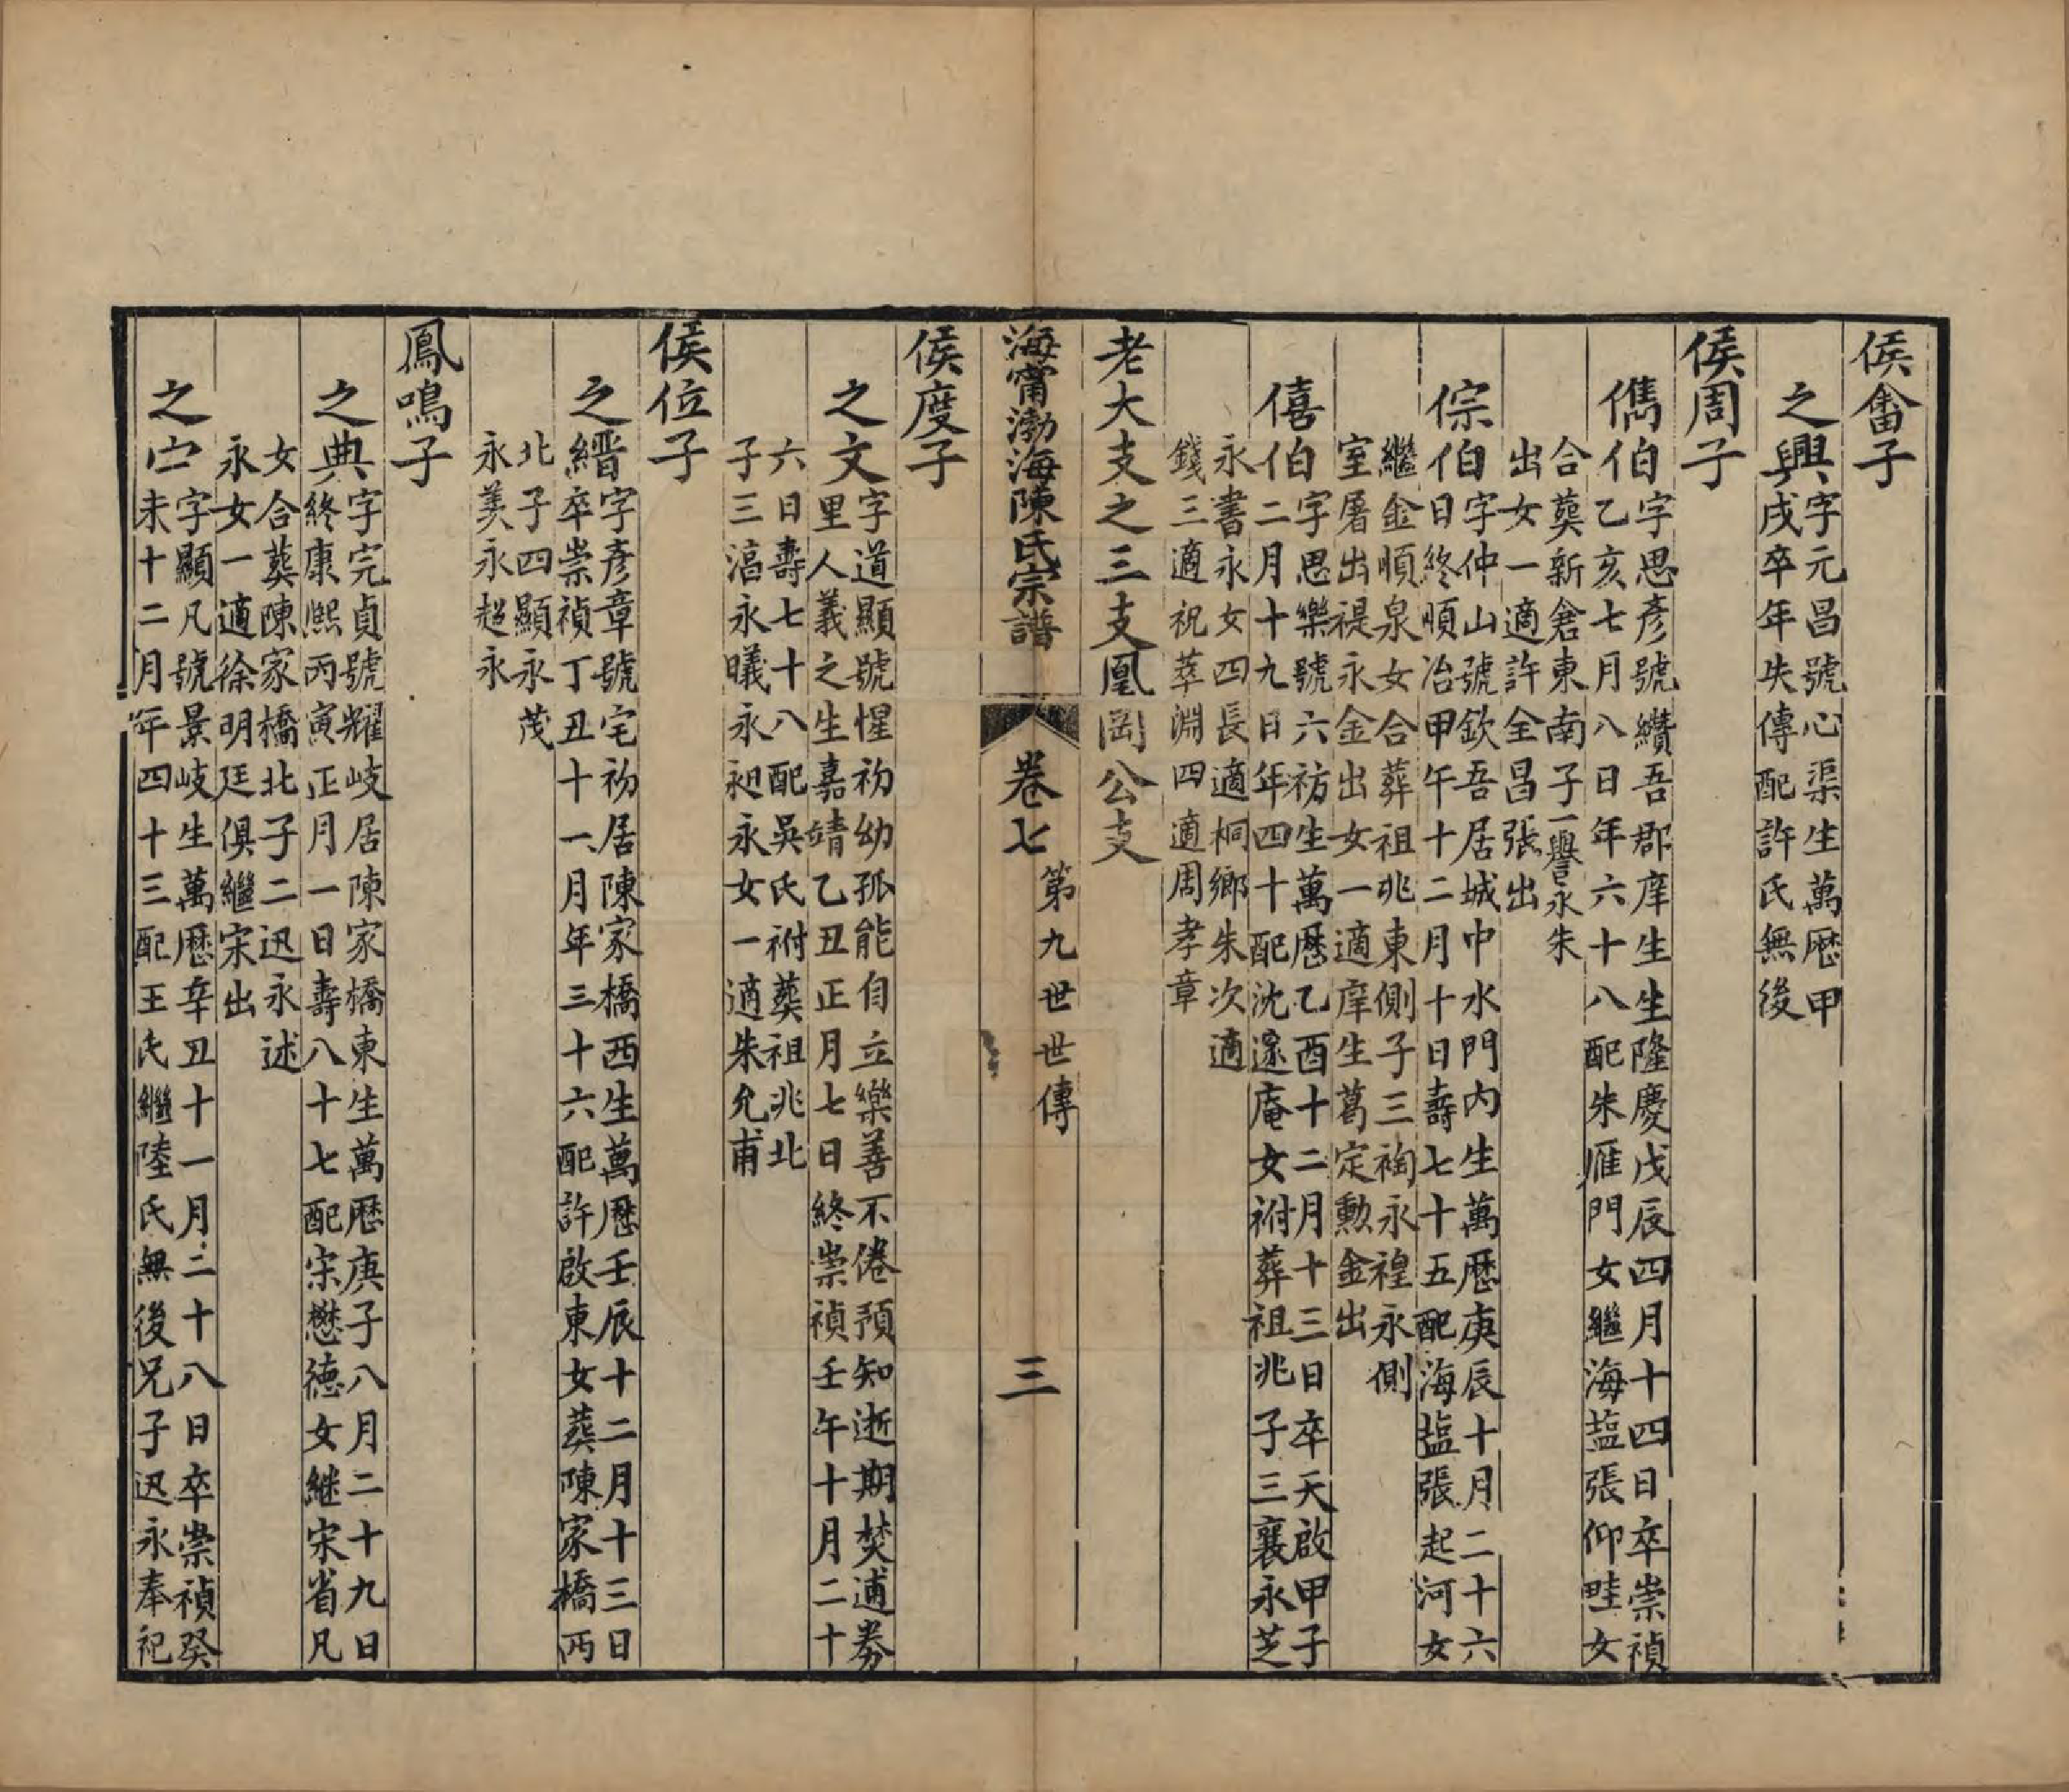 侯畬子
之興字元昌號心渠生萬歷甲
戌卒年失傳配許氏無後
侯周子
儁伯字思彥號纘吾郡庠生生隆慶戊辰四月十四日卒崇禎
乙亥七月八日年六十八配朱雁門女繼海盐張仰畦女
合葬新倉東南子一譽永朱
出女一適許全昌張出
倧伯字仲山號欽吾居城中水門内生萬歷庚辰十月二十六
日終順治甲午十二月十日壽七十五配海盐張起河女
繼金順泉女合葬祖兆東側子三裪永禋永側
室屠出禔永金出女一適庠生葛定勳金出
僖伯字思樂號六祊生萬歷乙酉十二月十三日卒天啟甲子
二月十九日年四十配沈邃庵女祔葬祖兆子三襄永芝
永書永女四長適桐鄉朱次適
錢三適祝萃淵四適周孝章
老大支之三支鳳岡公支
海甯渤海陳氏宗譜
卷七
第九世世傳
三
侯度子
之文字道顯號惺初幼孤能自立樂善不倦預知逝期焚逋券
里人義之生嘉靖乙丑正月七日終崇禎壬午十月二十
六日壽七十八配吳氏祔葬祖兆北
子三滆永曦永昶永女一適朱允甫
侯位子
之縉字彥章號宅初居陳家橋西生萬歷壬辰十二月十三日
卒崇禎丁丑十一月年三十六配許啟東女葬陳家橋西
北子四顯永茂
永美永超永
鳳鳴子
之典字完貞號耀岐居陳家橋東生萬歷庚子八月二十九日
終康熙丙寅正月一日壽八十七配宋懋德女継宋省凡
女合葬陳家橋北子二迅永述
永女一適徐明廷俱繼宋出
之宀字顯凡號景岐生萬歷辛丑十一月二十八日卒崇禎癸
未十二月年四十三配王氏繼陸氏無後兄子迅永奉祀